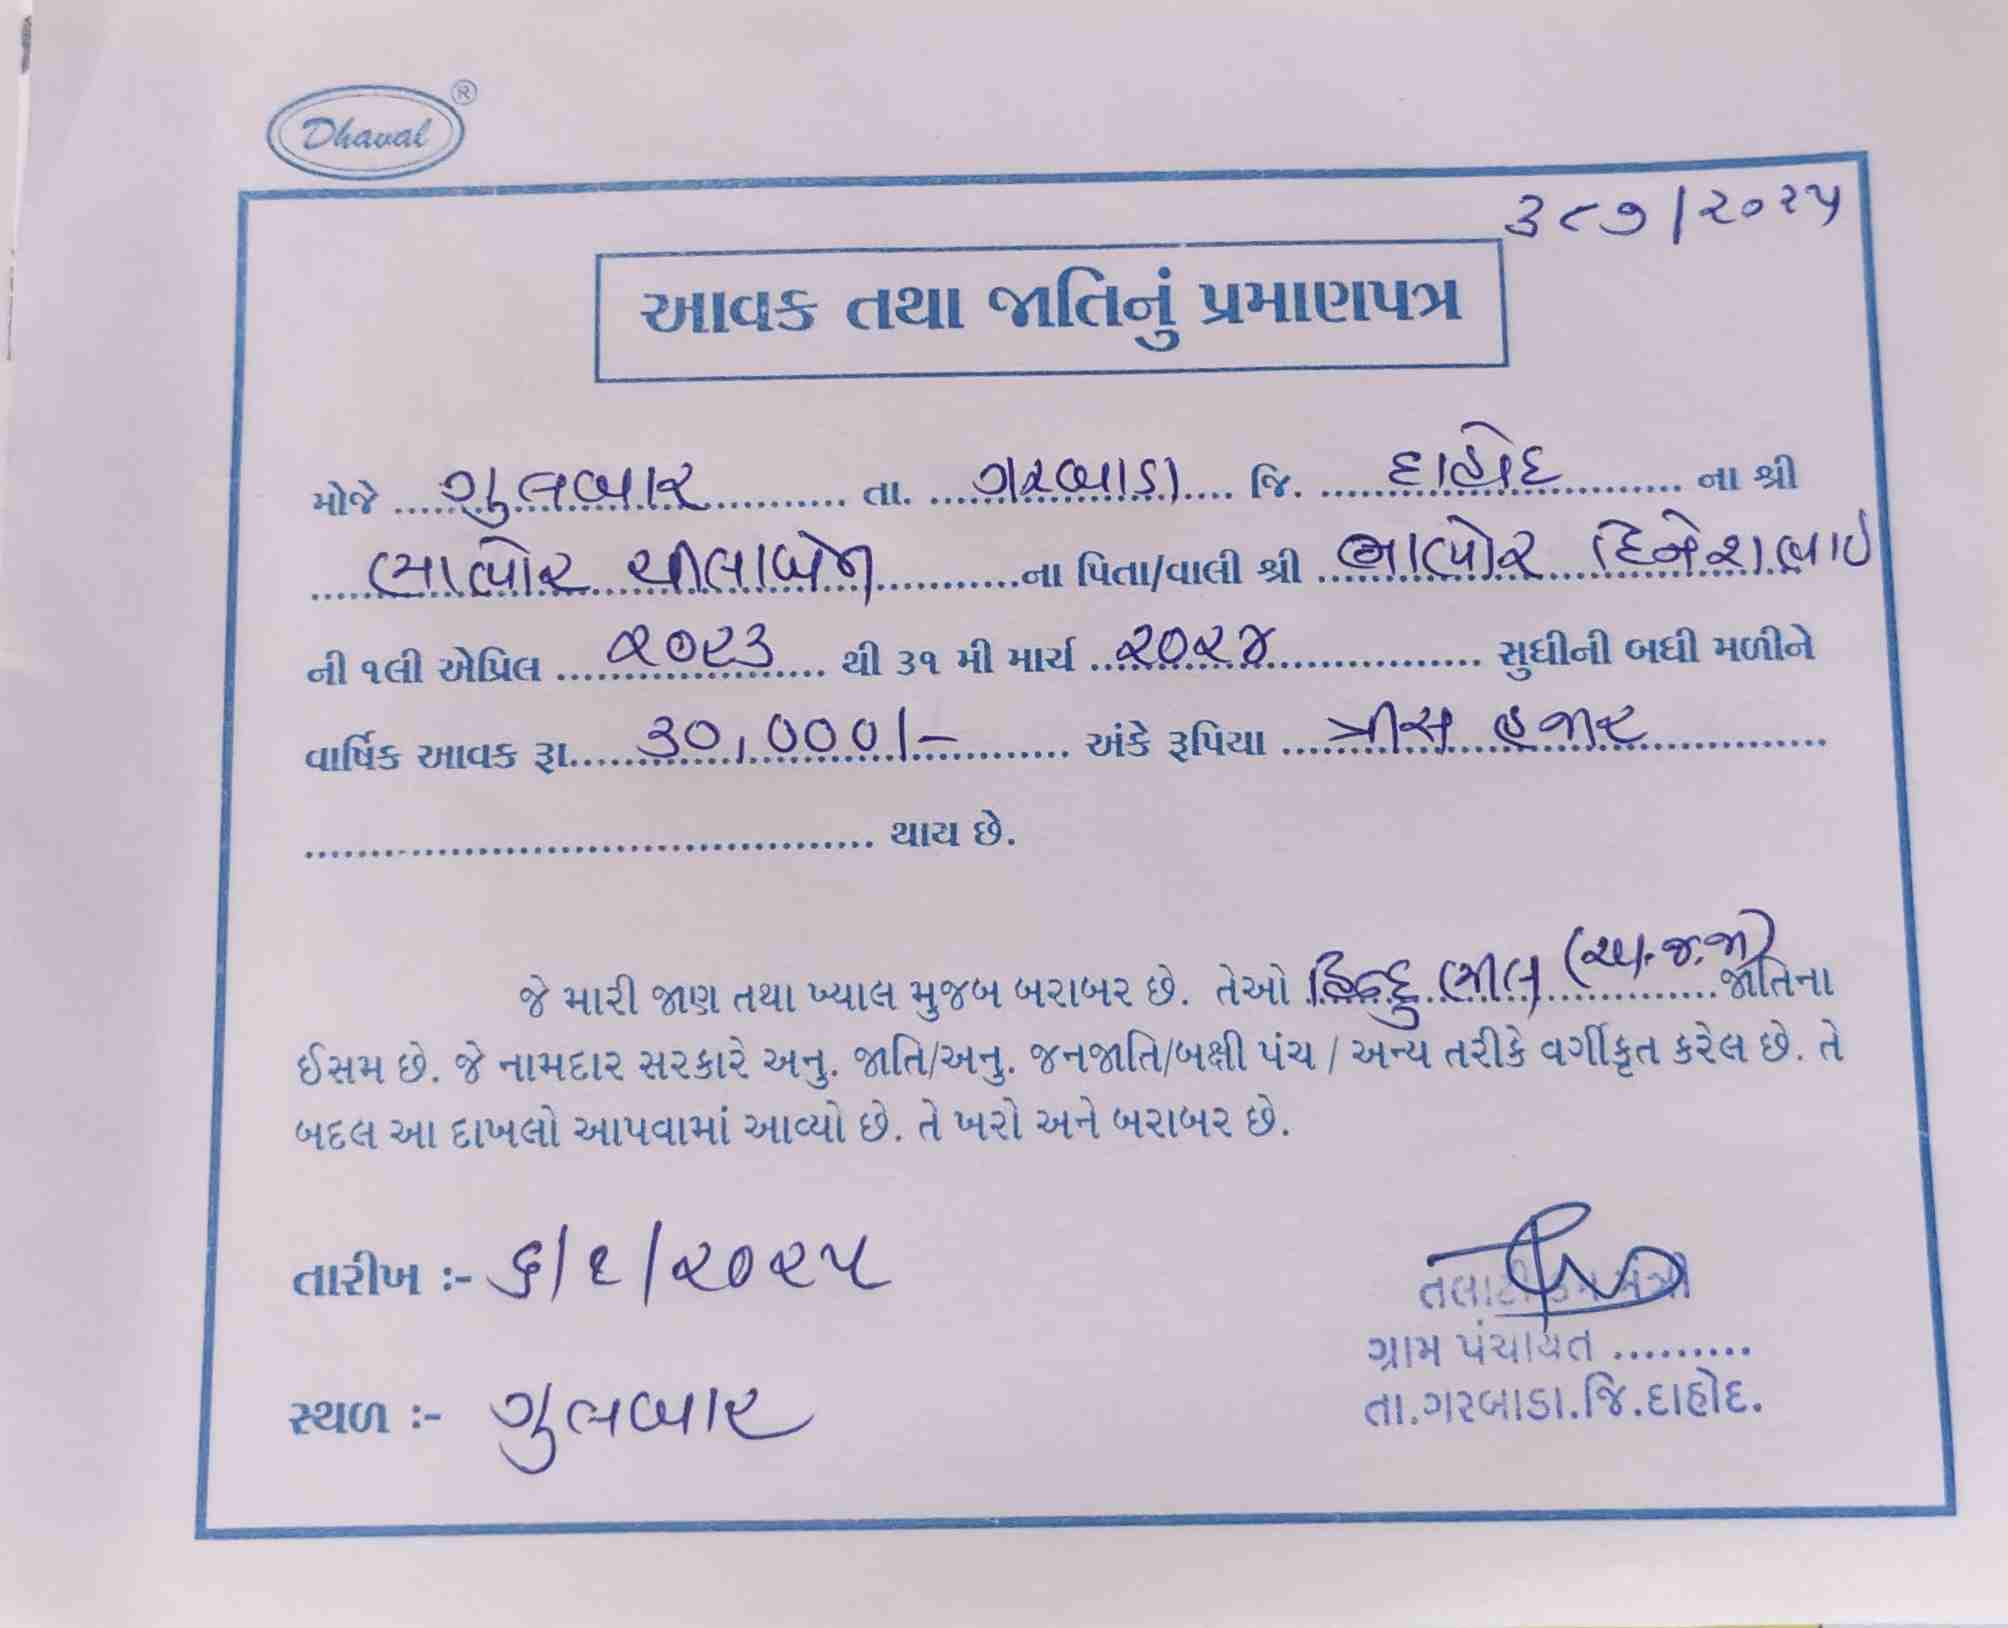 Dhaval ®
૩૮૭/૨૦૨૫
આવક તથા જાતિનું પ્રમાણપત્ર
મોજે ગુલબાર તા. ગરબાડા જિ. દાહોદ ના શ્રી
ભાભોર શીલાબેન ના પિતા/વાલી શ્રી ભાભોર દિનેશભાઇ
ની ૧લી એપ્રિલ ૨૦૨૩ થી ૩૧ મી માર્ચ ૨૦૨૪ સુધીની બધી મળીને
વાર્ષિક આવક રૂા. ૩૦,૦૦૦/- અંકે રૂપિયા ત્રીસ હજાર
થાય છે.
જે મારી જાણ તથા ખ્યાલ મુજબ બરાબર છે. તેઓ હિન્દુ ભીલ (અ.જ.જા) જાતિના
ઈસમ છે. જે નામદાર સરકારે અનુ. જાતિ/અનુ. જનજાતિ/બક્ષી પંચ / અન્ય તરીકે વર્ગીકૃત કરેલ છે. તે
બદલ આ દાખલો આપવામાં આવ્યો છે. તે ખરો અને બરાબર છે.
તારીખ :- ૬/૧/૨૦૨૫
તલાટી કમ મંત્રી
ગ્રામ પંચાયત .........
તા.ગરબાડા.જિ.દાહોદ.
સ્થળ :- ગુલબાર